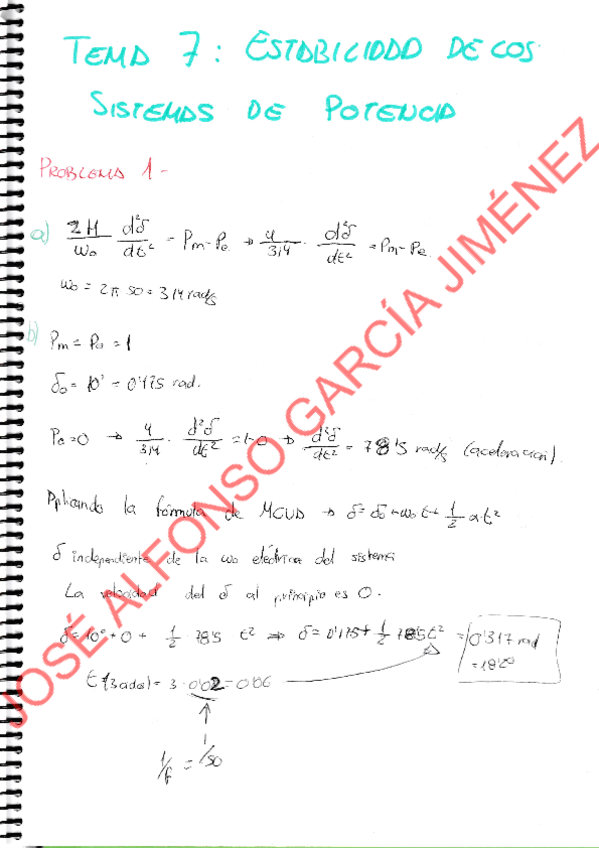 TEMA 7: ESTABILIDAD DE LOS
SISTEMAS DE POTENCIA
PROBLEMA 1-
a) 2H/ω₀ d²δ/dt² = Pm-Pe → 4/314 · d²δ/dt² = Pm-Pe
ω₀ = 2π·50 = 314 rad/s
b) Pm = Pe = 1
δ₀ = 10° = 0'175 rad.
Pe=0 → 4/314 · d²δ/dt² = 1-0 → d²δ/dt² = 78'5 rad/s (aceleración).
Aplicando la fórmula de MCUA → δ = δ₀ + ω₀t + 1/2 α·t²
δ independiente de la ω₀ eléctrica del sistema
La velocidad del δ al principio es 0.
δ = 10° + 0 + 1/2 78'5 t² ⇒ δ = 0'175 + 1/2 78'5t² = 0'317 rad
= 18'2°
t(3 ciclos) = 3·0'02 = 0'06
1/f = 1/50
JOSÉ ALFONSO GARCÍA JIMÉNEZ